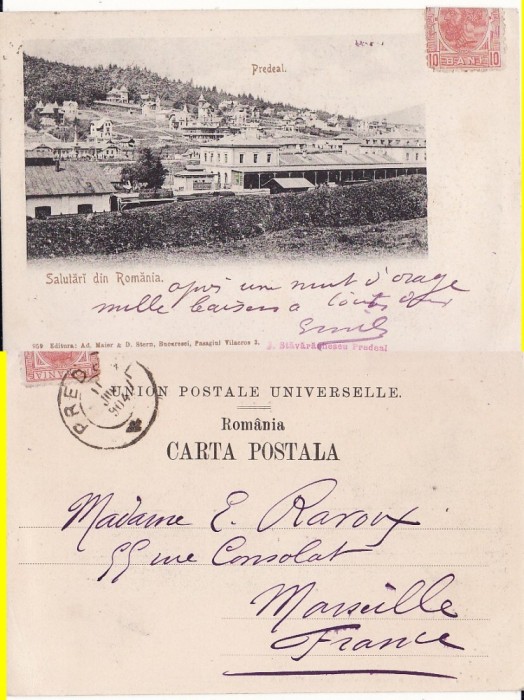 Predeal.
10 BANI 10
Salutări din România.
après une nuit d'orage
mille baisers a toutes deux
Emile
909 Editura: Ad. Maier & D. Stern, Bucuresci, Pasagiul Vilacros 2.
Stăvărăchescu Predeal
PRED
UNION POSTALE UNIVERSELLE.
România
CARTA POSTALA
Madame E. Ravoux
55 rue Consolat
Marseille
France